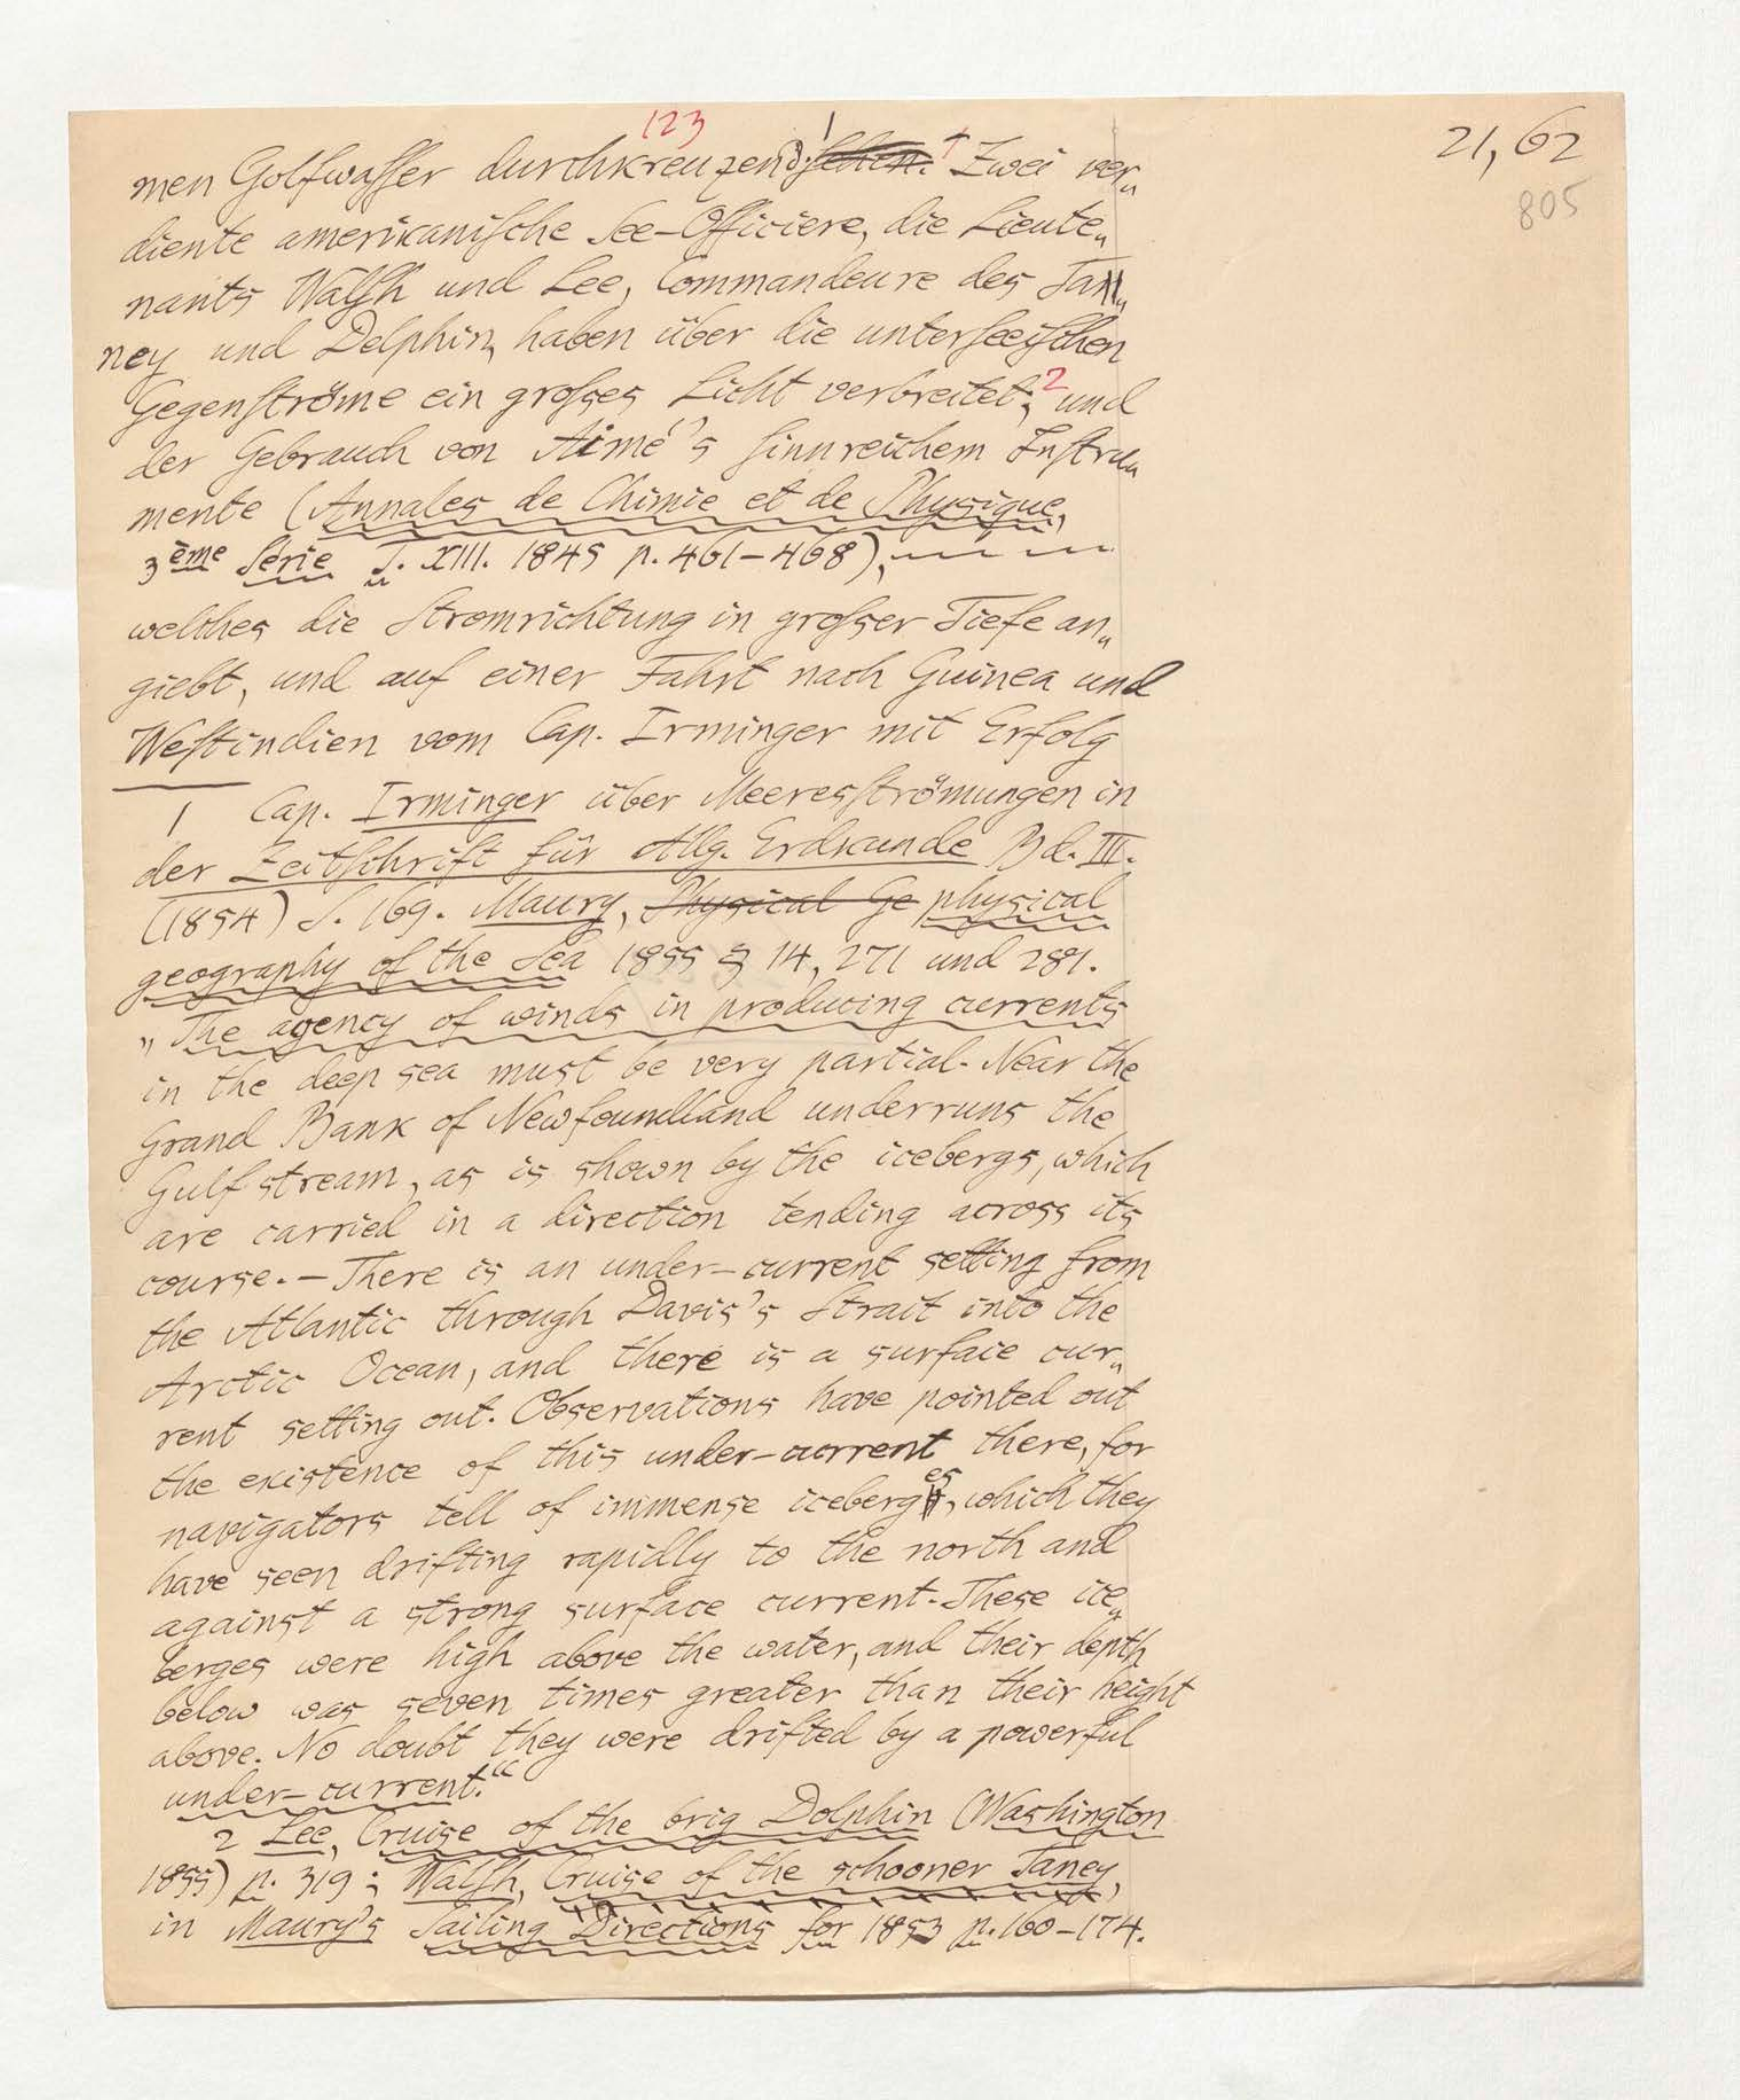 123
21, 62
805
men Golfwasser durchkreuzend sehen.¹ Zwei ver„
diente americanische See-Officiere, die Lieute„
nants Walsh und Lee, Commandeure des Tan„
ney und Delphin, haben über die unterseeischen
Gegenströme ein großes Licht verbreitet;² und
der Gebrauch von Aimé's sinnreichem Instru„
mente (Annales de Chimie et de Physique,
3ème Série T. XIII. 1845 p. 461–468),
welches die Stromrichtung in großer Tiefe an„
giebt, und auf einer Fahrt nach Guinea und
Westindien vom Cap. Irminger mit Erfolg
1 Cap. Irminger über Meeresströmungen in
der Zeitschrift für Allg. Erdkunde Bd. III.
(1854) S. 169. Maury, Physical Ge physical
geography of the Sea 1855 § 14, 271 und 281.
„The agency of winds in producing currents
in the deep sea must be very partial. Near the
Grand Bank of Newfoundland underruns the
Gulf stream, as is shown by the icebergs, which
are carried in a direction tending across its
course. – There is an under-current setting from
the Atlantic through Davis's Strait into the
Arctic Ocean, and there is a surface cur„
rent setting out. Observations have pointed out
the existence of this under-current there, for
navigators tell of immense iceberges, which they
have seen drifting rapidly to the north and
against a strong surface current. These ice„
berges were high above the water, and their depth
below was seven times greater than their height
above. No doubt they were drifted by a powerful
under-current.“
2 Lee, Cruise of the brig Dolphin (Washington
1855) p. 319; Walsh, Cruise of the schooner Taney,
in Maury's Sailing Directions for 1853 p. 160–174.